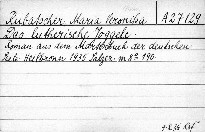 Rubatscher Maria Veronika A 27129
Das lutherische Joggele.
Roman aus dem Marterbuch der deutschen
Heilbronn 1935 Salzer. m 8° 190.